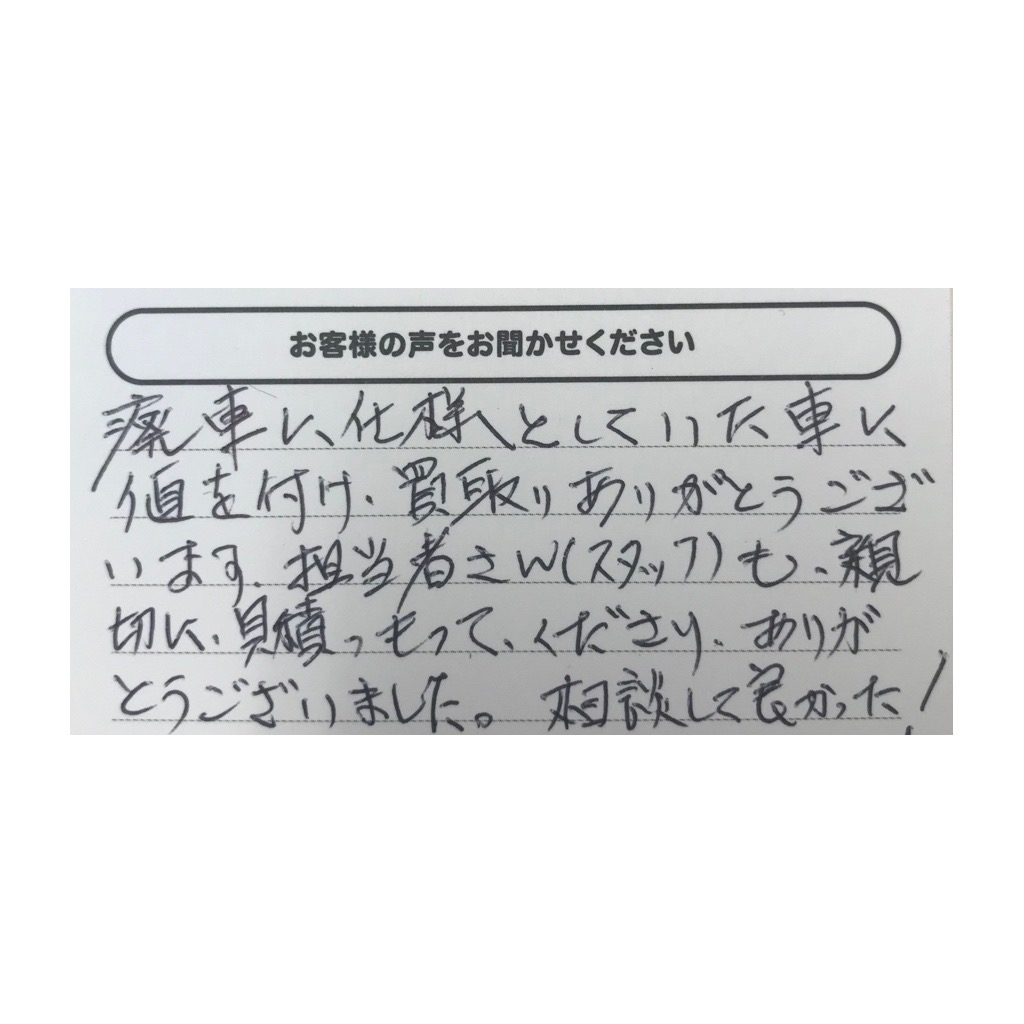 お客様の声をお聞かせください
廃車に、仕様としていた車に
値を付け、買取りありがとうござ
います。担当者さん(スタッフ)も、親
切に、見積っもって、くださり、ありが
とうございました。 相談して良かった!